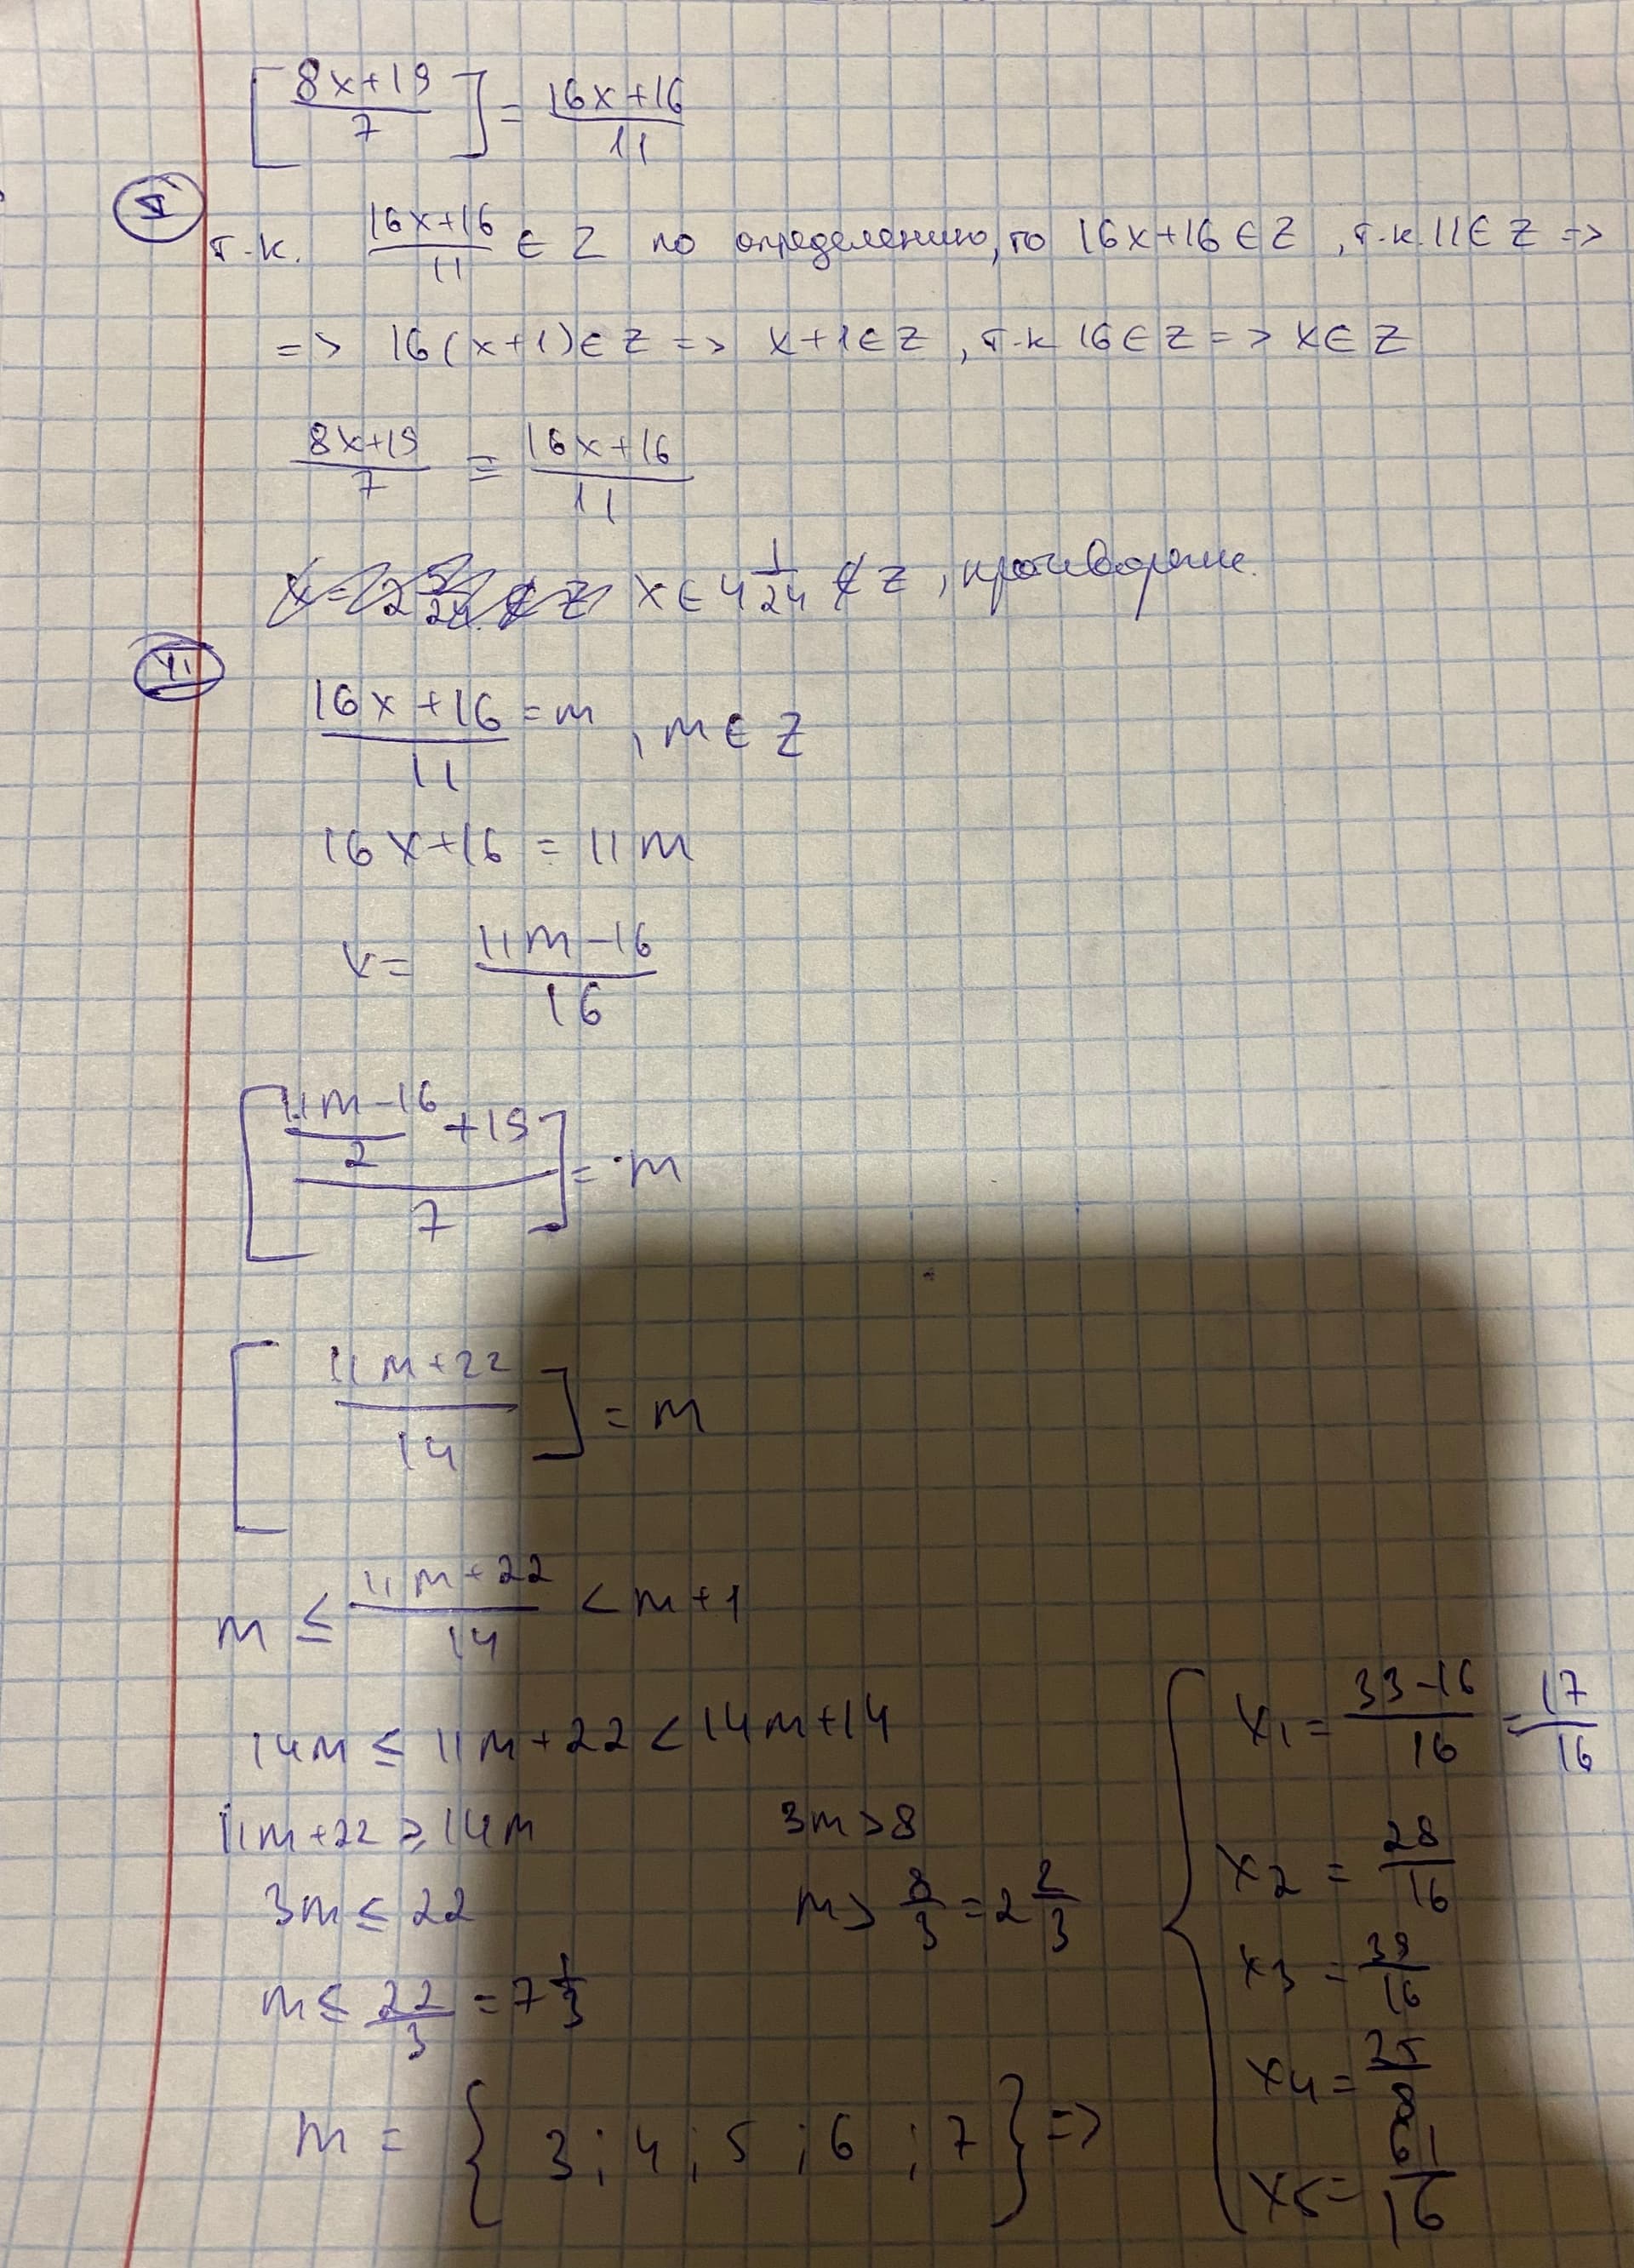 [(8x+19)/7] = (16x+16)/11
I
т.к. (16x+16)/11 ∈ Z по определению, то 16x+16 ∈ Z, т.к. 11 ∈ Z =>
=> 16(x+1) ∈ Z => x+1 ∈ Z, т.к 16 ∈ Z => x ∈ Z
(8x+19)/7 = (16x+16)/11
x ∈ 4 1/24 ∉ Z, противореч.
(16x+16)/11 = m, m ∈ Z
16x+16 = 11m
x = (11m-16)/16
[((11m-16)/2 +19)/7] = m
[(11m+22)/14] = m
m ≤ (11m+22)/14 < m+1
14m ≤ 11m+22 < 14m+14
11m+22 ≥ 14m
3m ≤ 22
m ≤ 22/3 = 7 1/3
3m > 8
m > 8/3 = 2 2/3
m = {3; 4; 5; 6; 7} =>
x1 = (33-16)/16 = 17/16
x2 = 28/16
x3 = 39/16
x4 = 25/8
x5 = 61/16